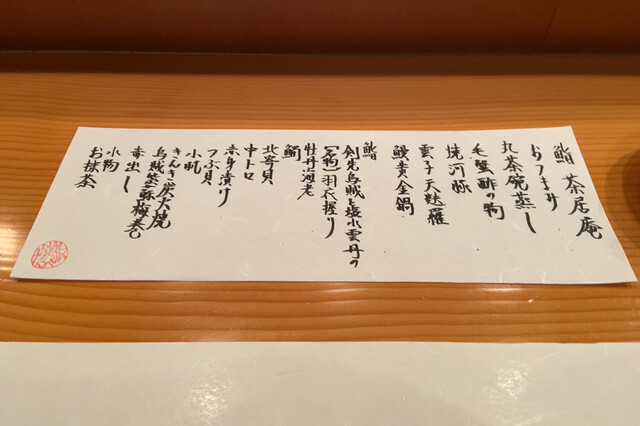 鮨 茶居庵
おつまみ
丸茶碗蒸し
毛蟹酢の物
焼河豚
雲子天麩羅
鰻黄金鍋
鮨
剣先烏賊と塩水雲丹の
羽衣握り
牡丹海老
鰤
北寄貝
中トロ
赤身漬け
つぶ貝
小肌
きんき炭火焼
烏賊紫蘇梅巻
壱出し
小物
お抹茶